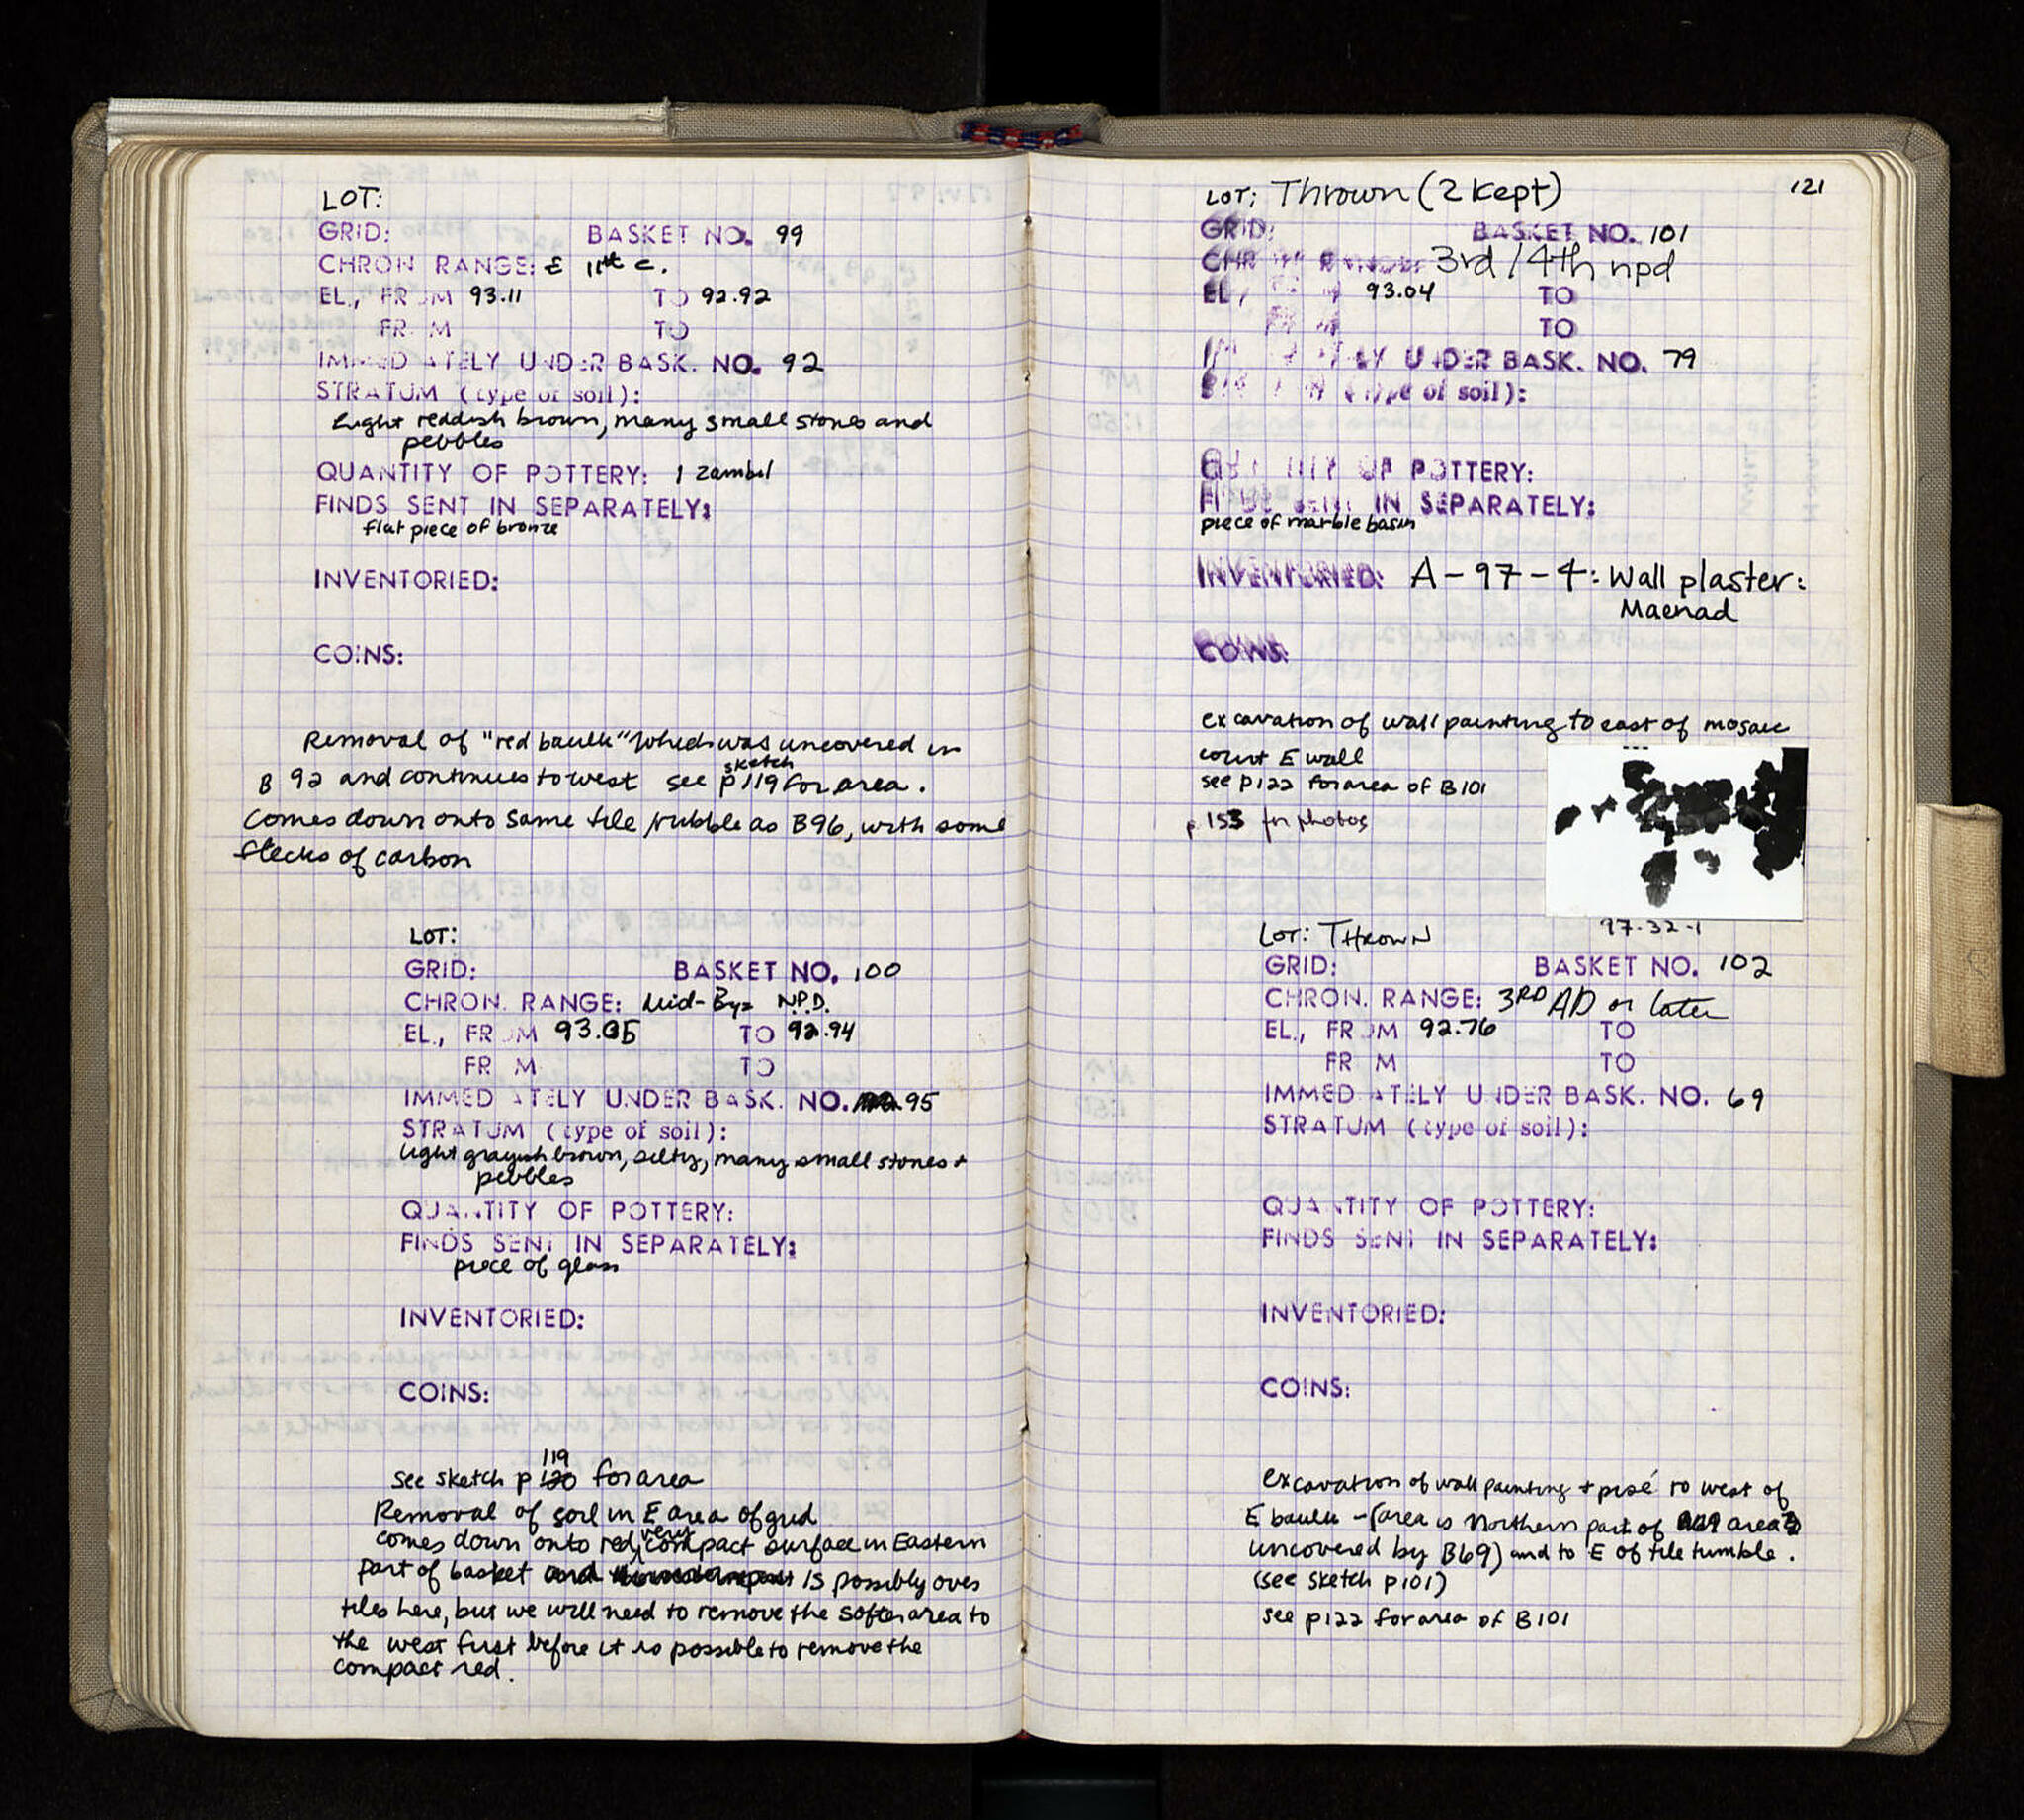 LOT:
GRID: BASKET NO. 99
CHRON RANGE: E 11th c.
EL., FROM 93.11 TO 92.92
FROM TO
IMMEDIATELY UNDER BASK. NO. 92
STRATUM (type of soil):
Light reddish brown, many small stones and
pebbles
QUANTITY OF POTTERY: 1 zambil
FINDS SENT IN SEPARATELY:
flat piece of bronze
INVENTORIED:
COINS:
Removal of "red baulk" which was uncovered in
B 92 and continues to west see sketch p119 for area.
Comes down onto same tile/rubble as B96, with some
flecks of carbon
LOT:
GRID: BASKET NO. 100
CHRON. RANGE: Mid-Byz N.P.D.
EL., FROM 93.05 TO 92.94
FROM TO
IMMEDIATELY UNDER BASK. NO. 95
STRATUM (type of soil):
light grayish brown, silty, many small stones +
pebbles
QUANTITY OF POTTERY:
FINDS SENT IN SEPARATELY:
piece of glass
INVENTORIED:
COINS:
119
see sketch p 120 for area
Removal of soil in E area of grid
comes down onto red, very compact surface in Eastern
part of basket and is possibly over
tiles here, but we will need to remove the softer area to
the west first before it is possible to remove the
compact red.
121
LOT: Thrown (2 kept)
GRID: BASKET NO. 101
CHRON RANGE: 3rd/4th npd
EL., FROM 93.04 TO
FROM TO
IMMEDIATELY UNDER BASK. NO. 79
STRATUM (type of soil):
QUANTITY OF POTTERY:
FINDS SENT IN SEPARATELY:
piece of marble basin
INVENTORIED: A-97-4: Wall plaster:
Maenad
COINS:
excavation of wall painting to east of mosaic
court E wall
see p122 for area of B101
p 153 for photos
97-32-1
LOT: THROWN
GRID: BASKET NO. 102
CHRON. RANGE: 3RD AD or later
EL., FROM 92.76 TO
FROM TO
IMMEDIATELY UNDER BASK. NO. 69
STRATUM (type of soil):
QUANTITY OF POTTERY:
FINDS SENT IN SEPARATELY:
INVENTORIED:
COINS:
excavation of wall painting + pisé to west of
E baulk - (area is Northern part of area
uncovered by B69) and to E of tile tumble.
(see sketch p101)
see p122 for area of B101